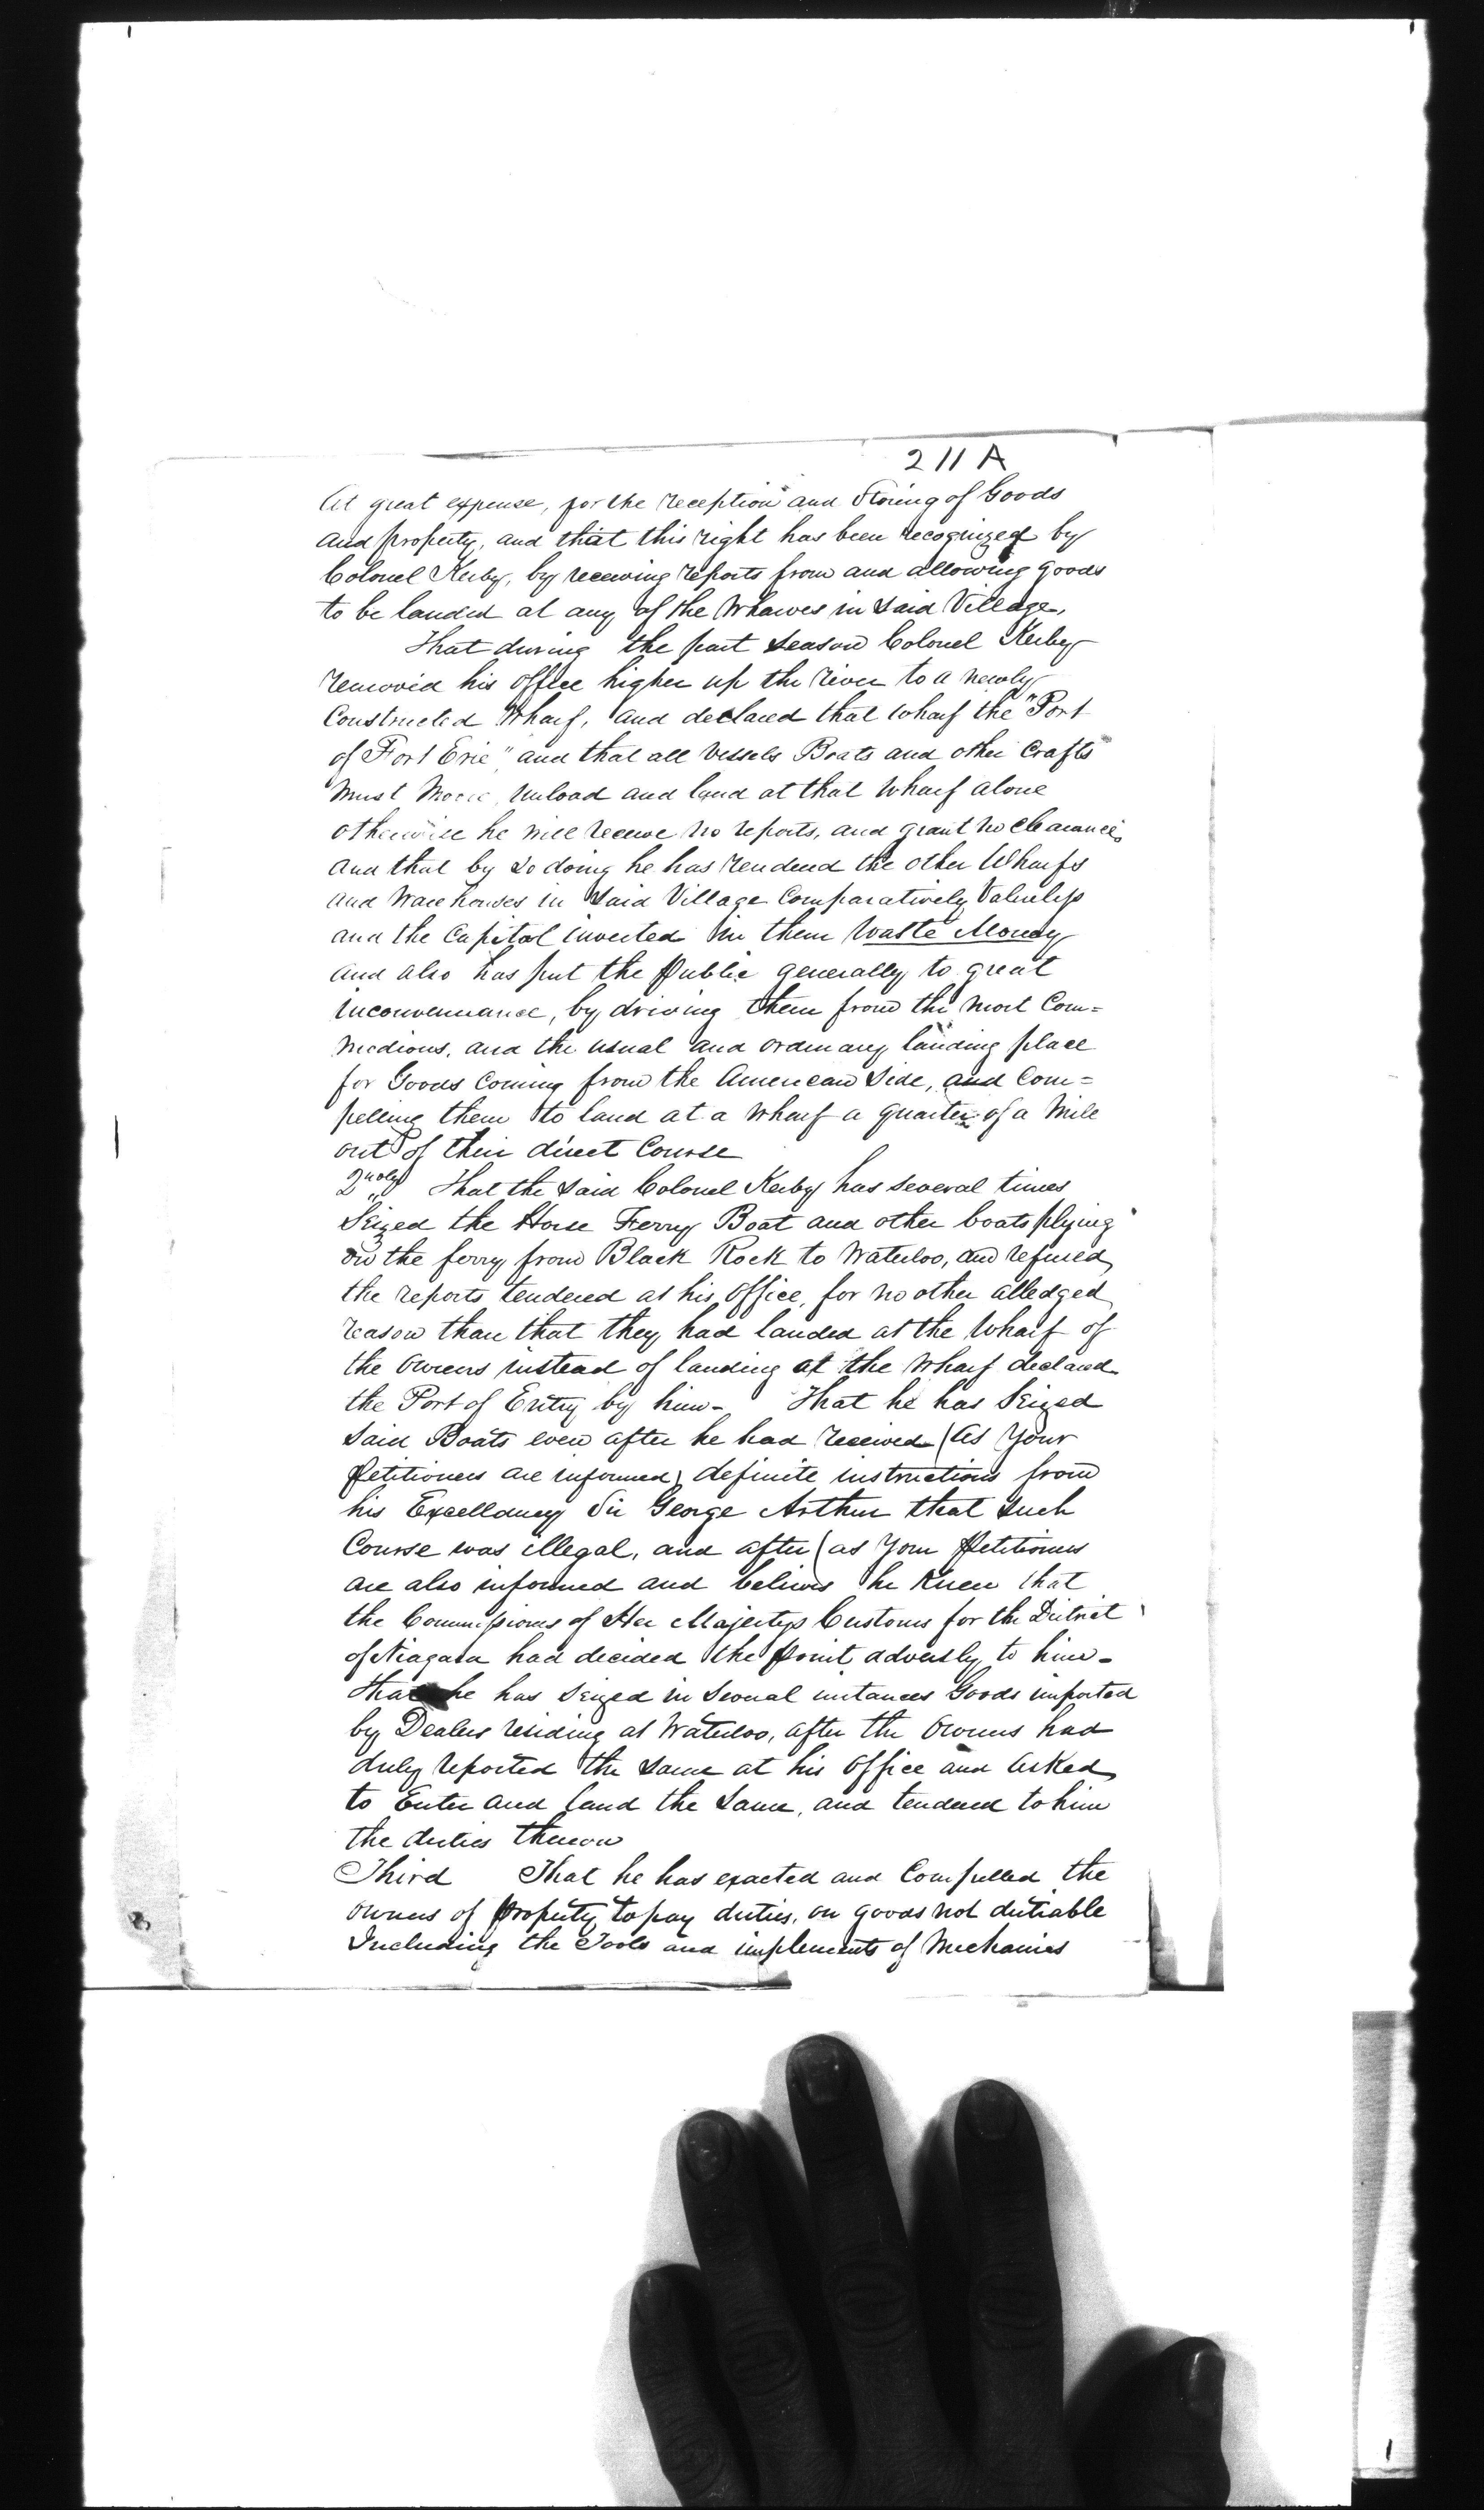 211 A
At great expense, for the reception and Storing of Goods
and property, and that this right has been recognized by
Colonel Kerby, by receiving reports from and allowing goods
to be landed at any of the Wharves in said Village,
That during the past season Colonel Kerby
removed his office higher up the river to a newly
Constructed Wharf, and declared that wharf the "Port
of Fort Erie" and that all vessels Boats and other Crafts
Must Moore, Unload and land at that wharf alone
otherwise he will receive no reports, and grant no clearance,
and that by so doing he has rendered the other Wharfs
and Warehouses in said Village Comparatively Valueless
and the Capital invested in them Waste Money
and also has put the Public generally to great
inconvenniance, by driving them from the most Com=
modious, and the usual and ordinary landing place
for Goods Coming from the American Side, and Com=
pelling them to land at a wharf a quarter of a Mile
out of their direct Course
2ndly That the said Colonel Kerby has several times
Seized the Horse Ferry Boat and other boats plying
on the ferry from Black Rock to Waterloo, and refused
the reports tendered at his office, for no other alledged
reason than that they had landed at the Wharf of
the Owners instead of landing at the wharf declared
the Port of Entry by him- That he has Seized
said Boats even after he had received (As Your
Petitioners are informed) definite instructions from
his Excellancy Sir George Arthur that such
Course was illegal, and after (as Your Petitioners
are also informed and believes he knew that
the Commissioners of Her Majestys Customs for the District
of Niagara had decided the point adversly to him-
that he has seized in several instances Goods imported
by Dealers residing at Waterloo, after the Owners had
duly reported the same at his office and Asked
to Enter and land the same, and tendered to him
the duties thereon
Third That he has exacted and Compelled the
owners of property to pay duties, on goods not dutiable
Including the Tools and implements of Mechanics